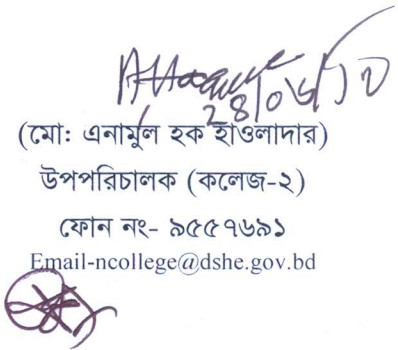 28/06/10
(মো: এনামুল হক হাওলাদার)
উপপরিচালক (কলেজ-২)
ফোন নং- ৯৫৫৭৬৯১
Email-ncollege@dshe.gov.bd